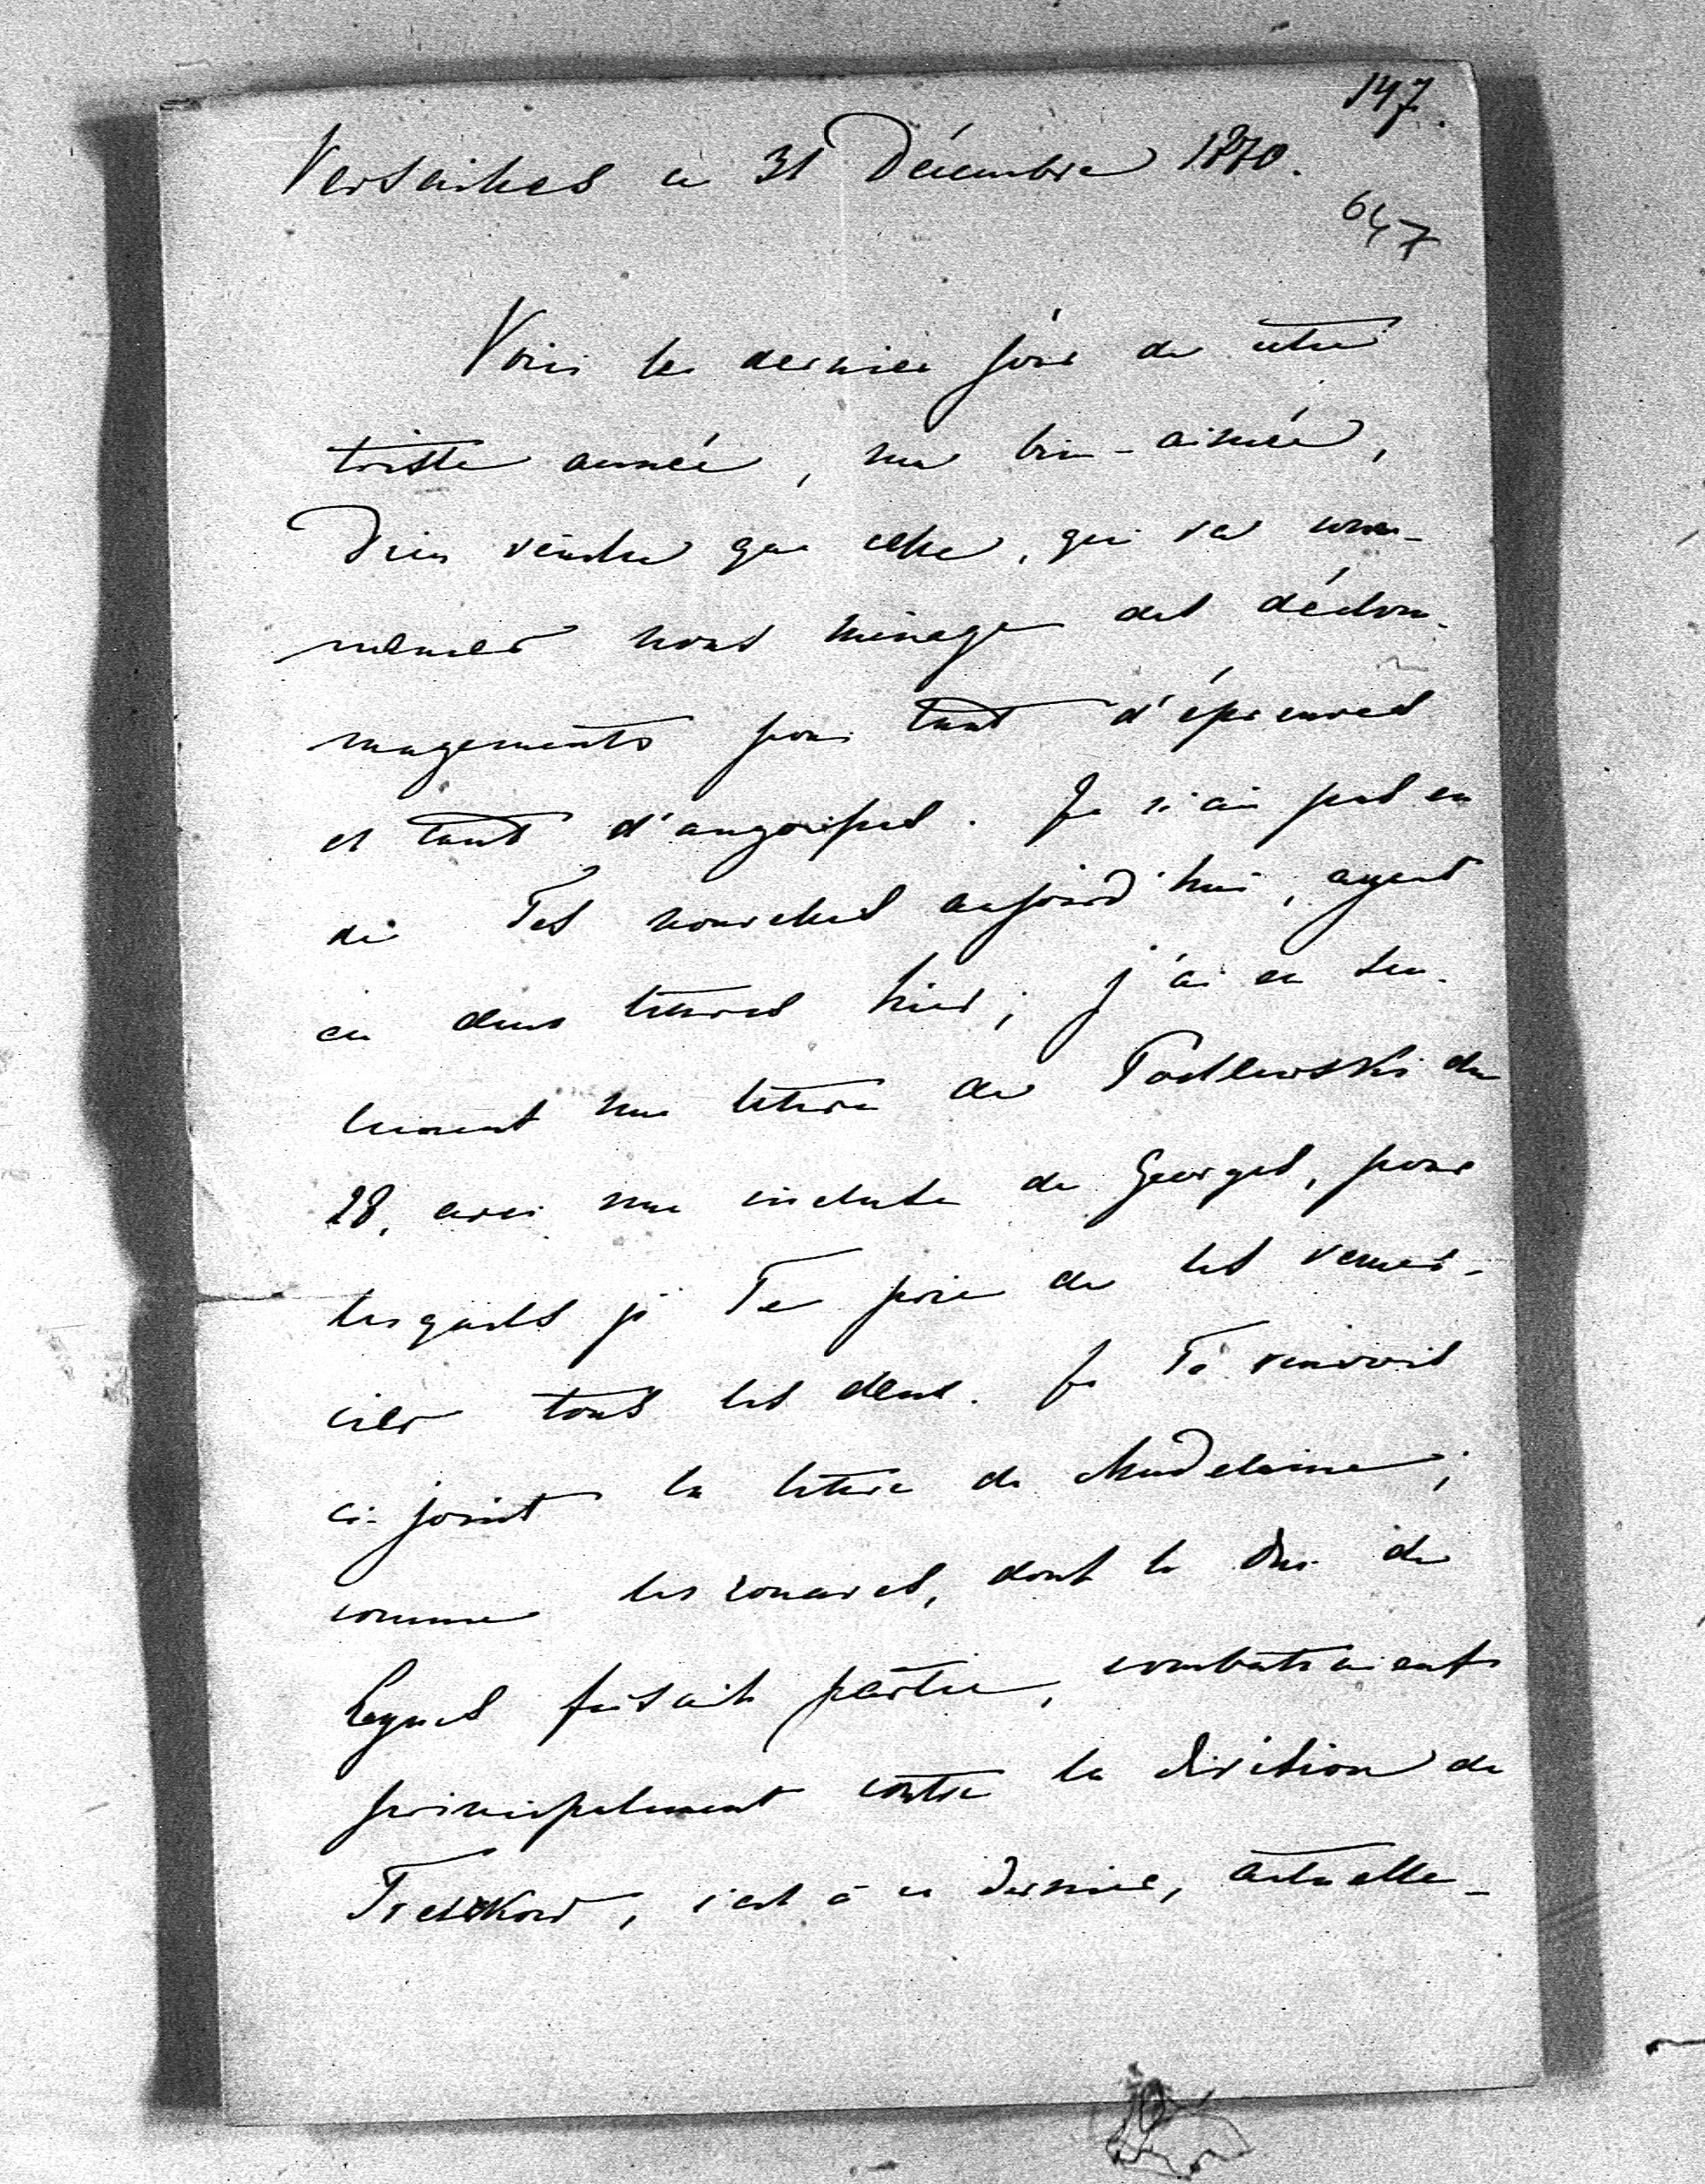 147.
Versailles ce 31 Décembre 1870.
647
Voici le dernier jour de cette
triste année, ma bien-aimée,
Dieu veuille que celle, qui va com-
mencer nous ménage des dédom-
magements pour tant d'épreuves
et tant d'angoisses. Je n'ai pas eu
de Tes nouvelles aujourd'hui, ayant
eu deux lettres hier; j'ai eu seu-
lement une lettre de Podlewski du
28, avec une incluse de Georges, pour
lesquels je Te prie de les remer-
cier tous les deux. Je Te renvois
ci-joint la lettre de Madelaine;
comme les zouaves, dont le Duc de
Luynes faisait partie, combattaient
principalement contre la division de
Treskow, c'est à ce dernier, actuelle-